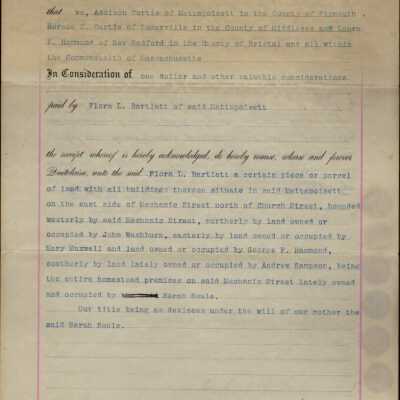 that we, Addison Curtis of Mattapoisett in the County of Plymouth
Horace C. Curtis of Somerville in the County of Middlesex and Laura
F. Hammond of New Bedford in the County of Bristol and all within
the Commonwealth of Massachusetts
In Consideration of one dollar and other valuable considerations
paid by Flora L. Bartlett of said Mattapoisett
the receipt whereof is hereby acknowledged, do hereby remise, release and forever
Quitclaim, unto the said Flora L. Bartlett a certain piece or parcel
of land with all buildings thereon situate in said Mattapoisett
on the east side of Mechanic Street north of Church Street, bounded
westerly by said Mechanic Street, northerly by land owned or
occupied by John Washburn, easterly by land owned or occupied by
Mary Maxwell and land owned or occupied by George F. Hammond,
southerly by land lately owned or occupied by Andrew Sampson, being
the entire homestead premises on said Mechanic Street lately owned
and occupied by Sarah Soule.
Our title being as devisees under the will of our mother the
said Sarah Soule.